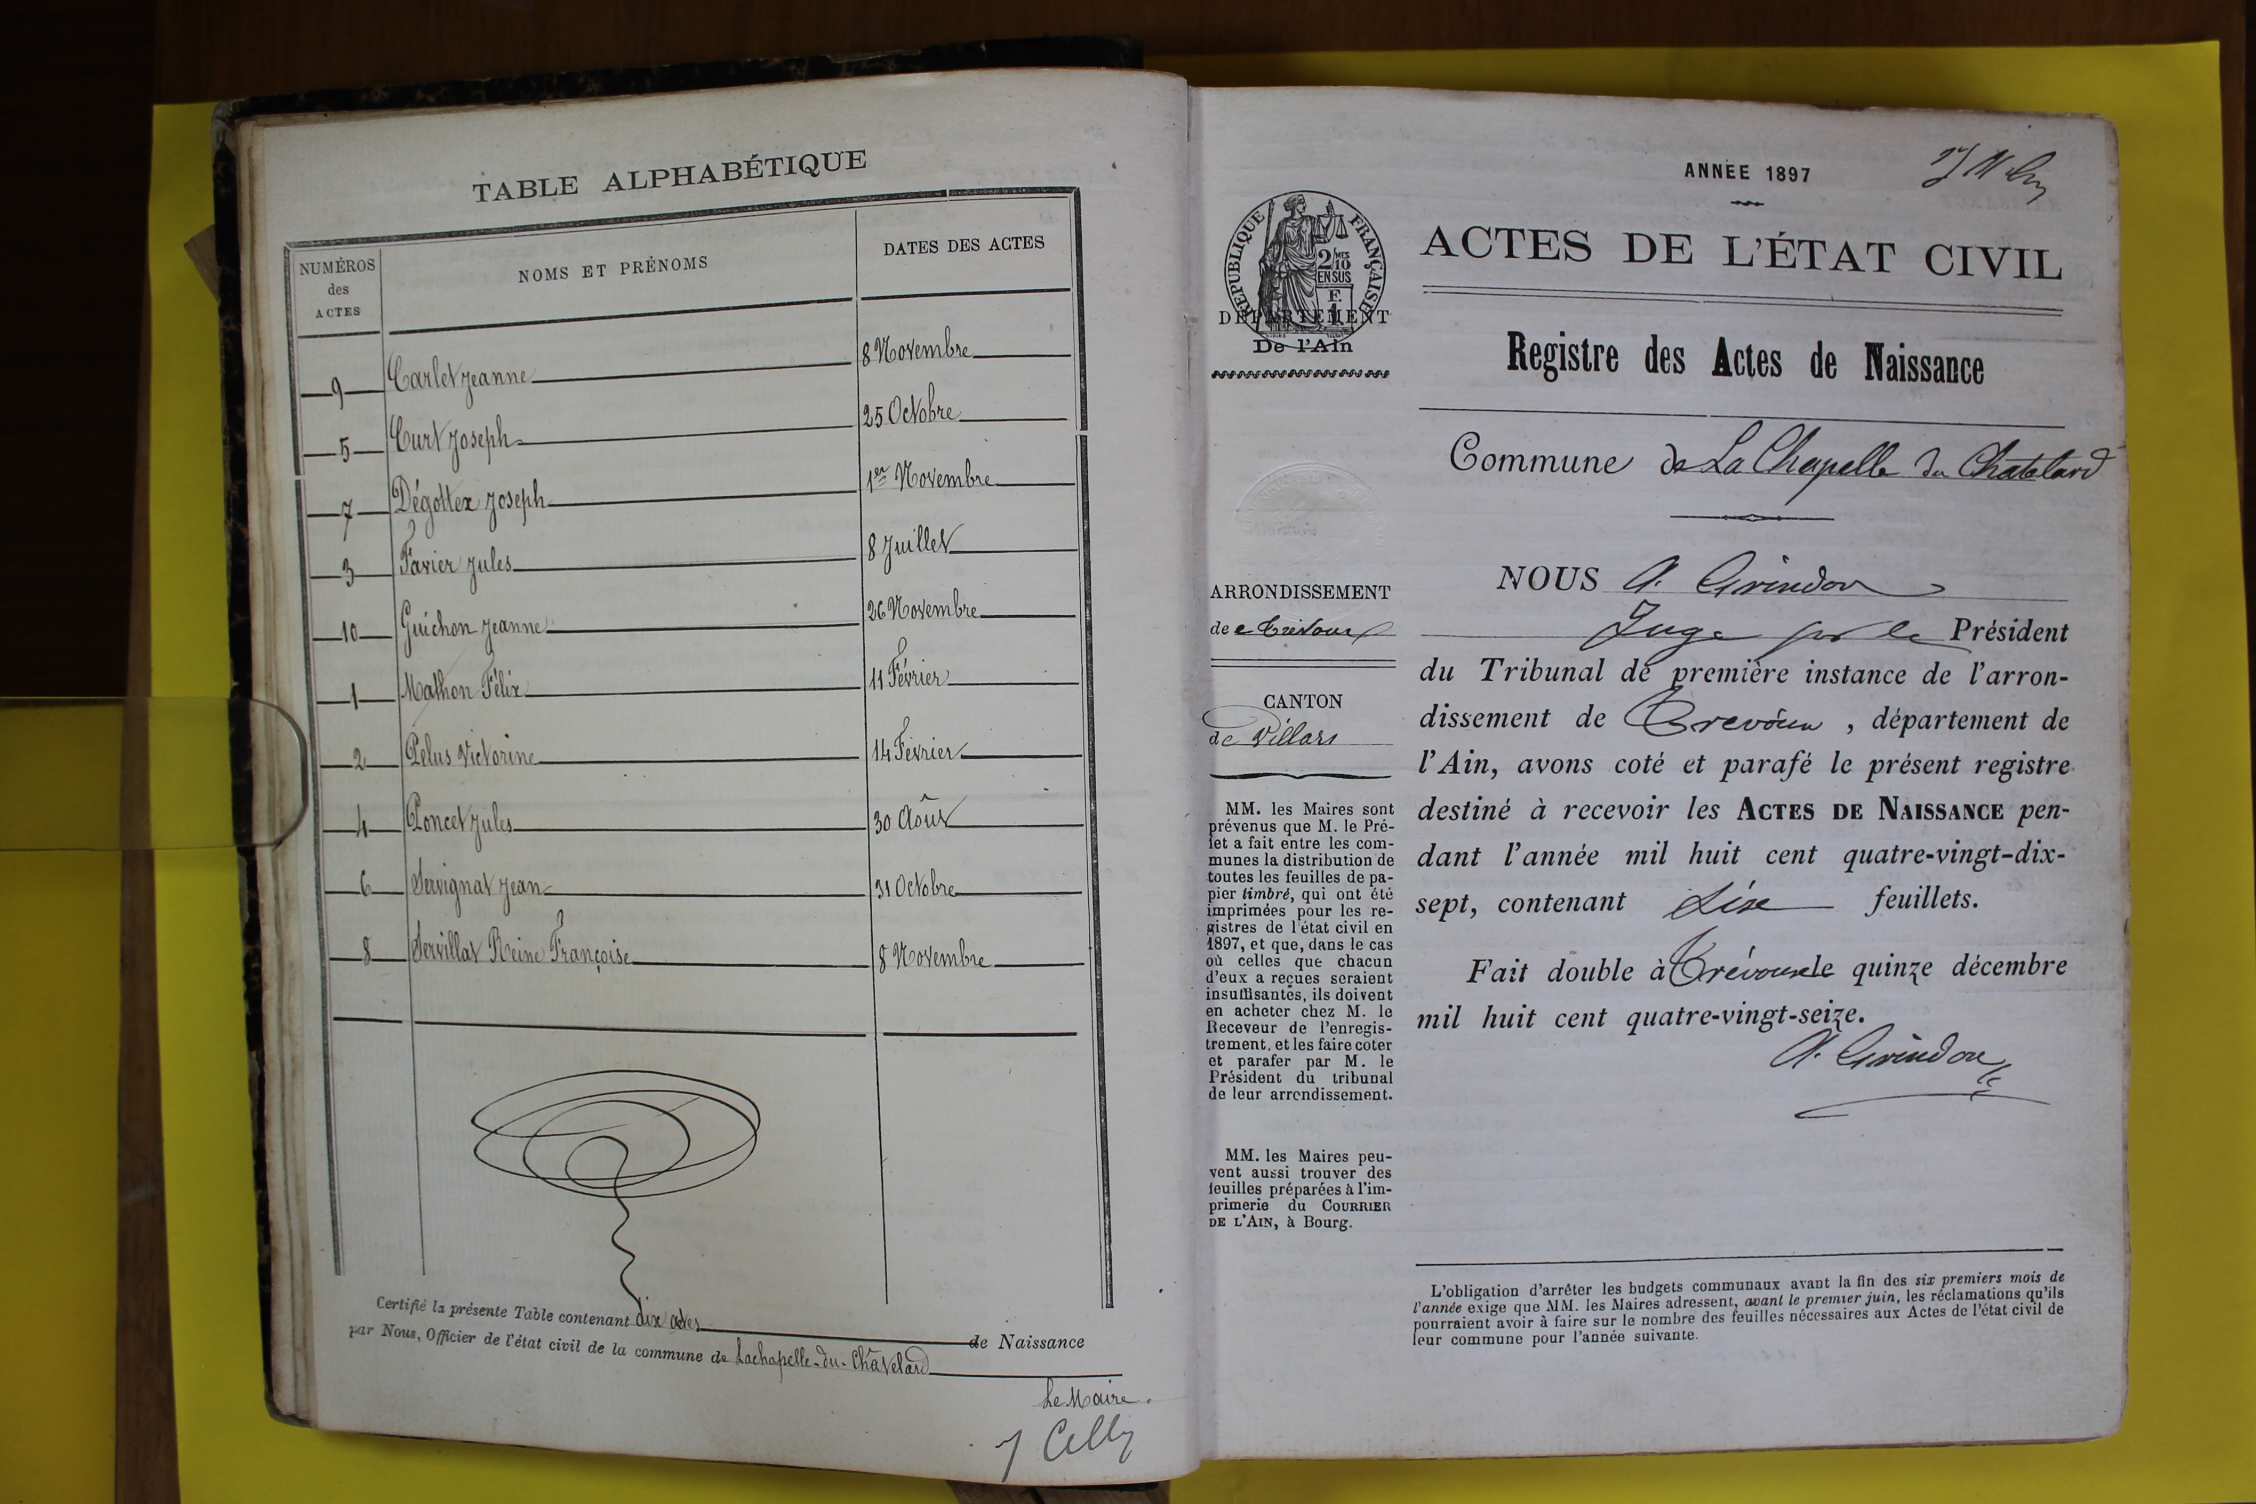 TABLE ALPHABÉTIQUE
NUMÉROS des ACTES
NOMS ET PRÉNOMS
DATES DES ACTES
9 Carlet Jeanne 8 Novembre
5 Curt Joseph 25 Octobre
7 Dégottex Joseph 1er Novembre
3 Favier Jules 8 Juillet
10 Guichon Jeanne 26 Novembre
1 Mathon Félix 11 Février
2 Pelus Victorine 14 Février
4 Poncet Jules 30 Août
6 Servignat Jean 31 Octobre
8 Servillat Reine Françoise 8 Novembre
Certifié la présente Table contenant dix actes de Naissance
par Nous, Officier de l'état civil de la commune de Lachapelle-du-Châtelard
Le Maire.
ANNÉE 1897
RÉPUBLIQUE FRANÇAISE
2/10 MES
EN SUS
F.
1
DÉPARTEMENT
De l'Ain
ARRONDISSEMENT
de Trévoux
CANTON
de Villars
MM. les Maires sont
prévenus que M. le Pré-
fet a fait entre les com-
munes la distribution de
toutes les feuilles de pa-
pier timbré, qui ont été
imprimées pour les re-
gistres de l'état civil en
1897, et que, dans le cas
où celles que chacun
d'eux a reçues seraient
insuffisantes, ils doivent
en acheter chez M. le
Receveur de l'enregis-
trement, et les faire coter
et parafer par M. le
Président du tribunal
de leur arrondissement.
MM. les Maires peu-
vent aussi trouver des
feuilles préparées à l'im-
primerie du COURRIER
DE L'AIN, à Bourg.
ACTES DE L'ÉTAT CIVIL
Registre des Actes de Naissance
Commune de La Chapelle du Chatelard
NOUS A. Grindon
Juge pr le Président
du Tribunal de première instance de l'arron-
dissement de Trévoux, département de
l'Ain, avons coté et parafé le présent registre
destiné à recevoir les ACTES DE NAISSANCE pen-
dant l'année mil huit cent quatre-vingt-dix-
sept, contenant six feuillets.
Fait double à Trévoux le quinze décembre
mil huit cent quatre-vingt-seize.
A. Grindon
L'obligation d'arrêter les budgets communaux avant la fin des six premiers mois de
l'année exige que MM. les Maires adressent, avant le premier juin, les réclamations qu'ils
pourraient avoir à faire sur le nombre des feuilles nécessaires aux Actes de l'état civil de
leur commune pour l'année suivante.